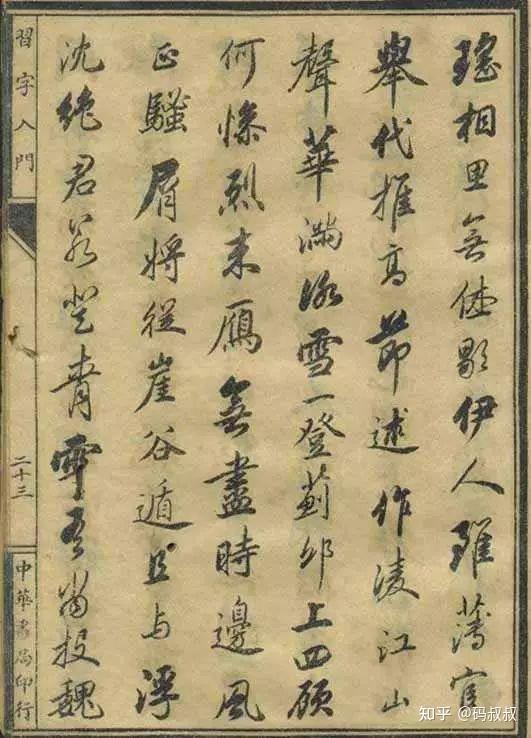 瑤相思無休歇伊人雖薄宦
舉代推高節述作凌江山
聲華滿冰雪一登薊邱上四顧
何慘烈来鴈無盡時邊風
正騷屑將從崖谷遁且与浮
沈絶君若登青雲吾當投魏
習字入門
二十三
中華書局印行
知乎 @码叔叔